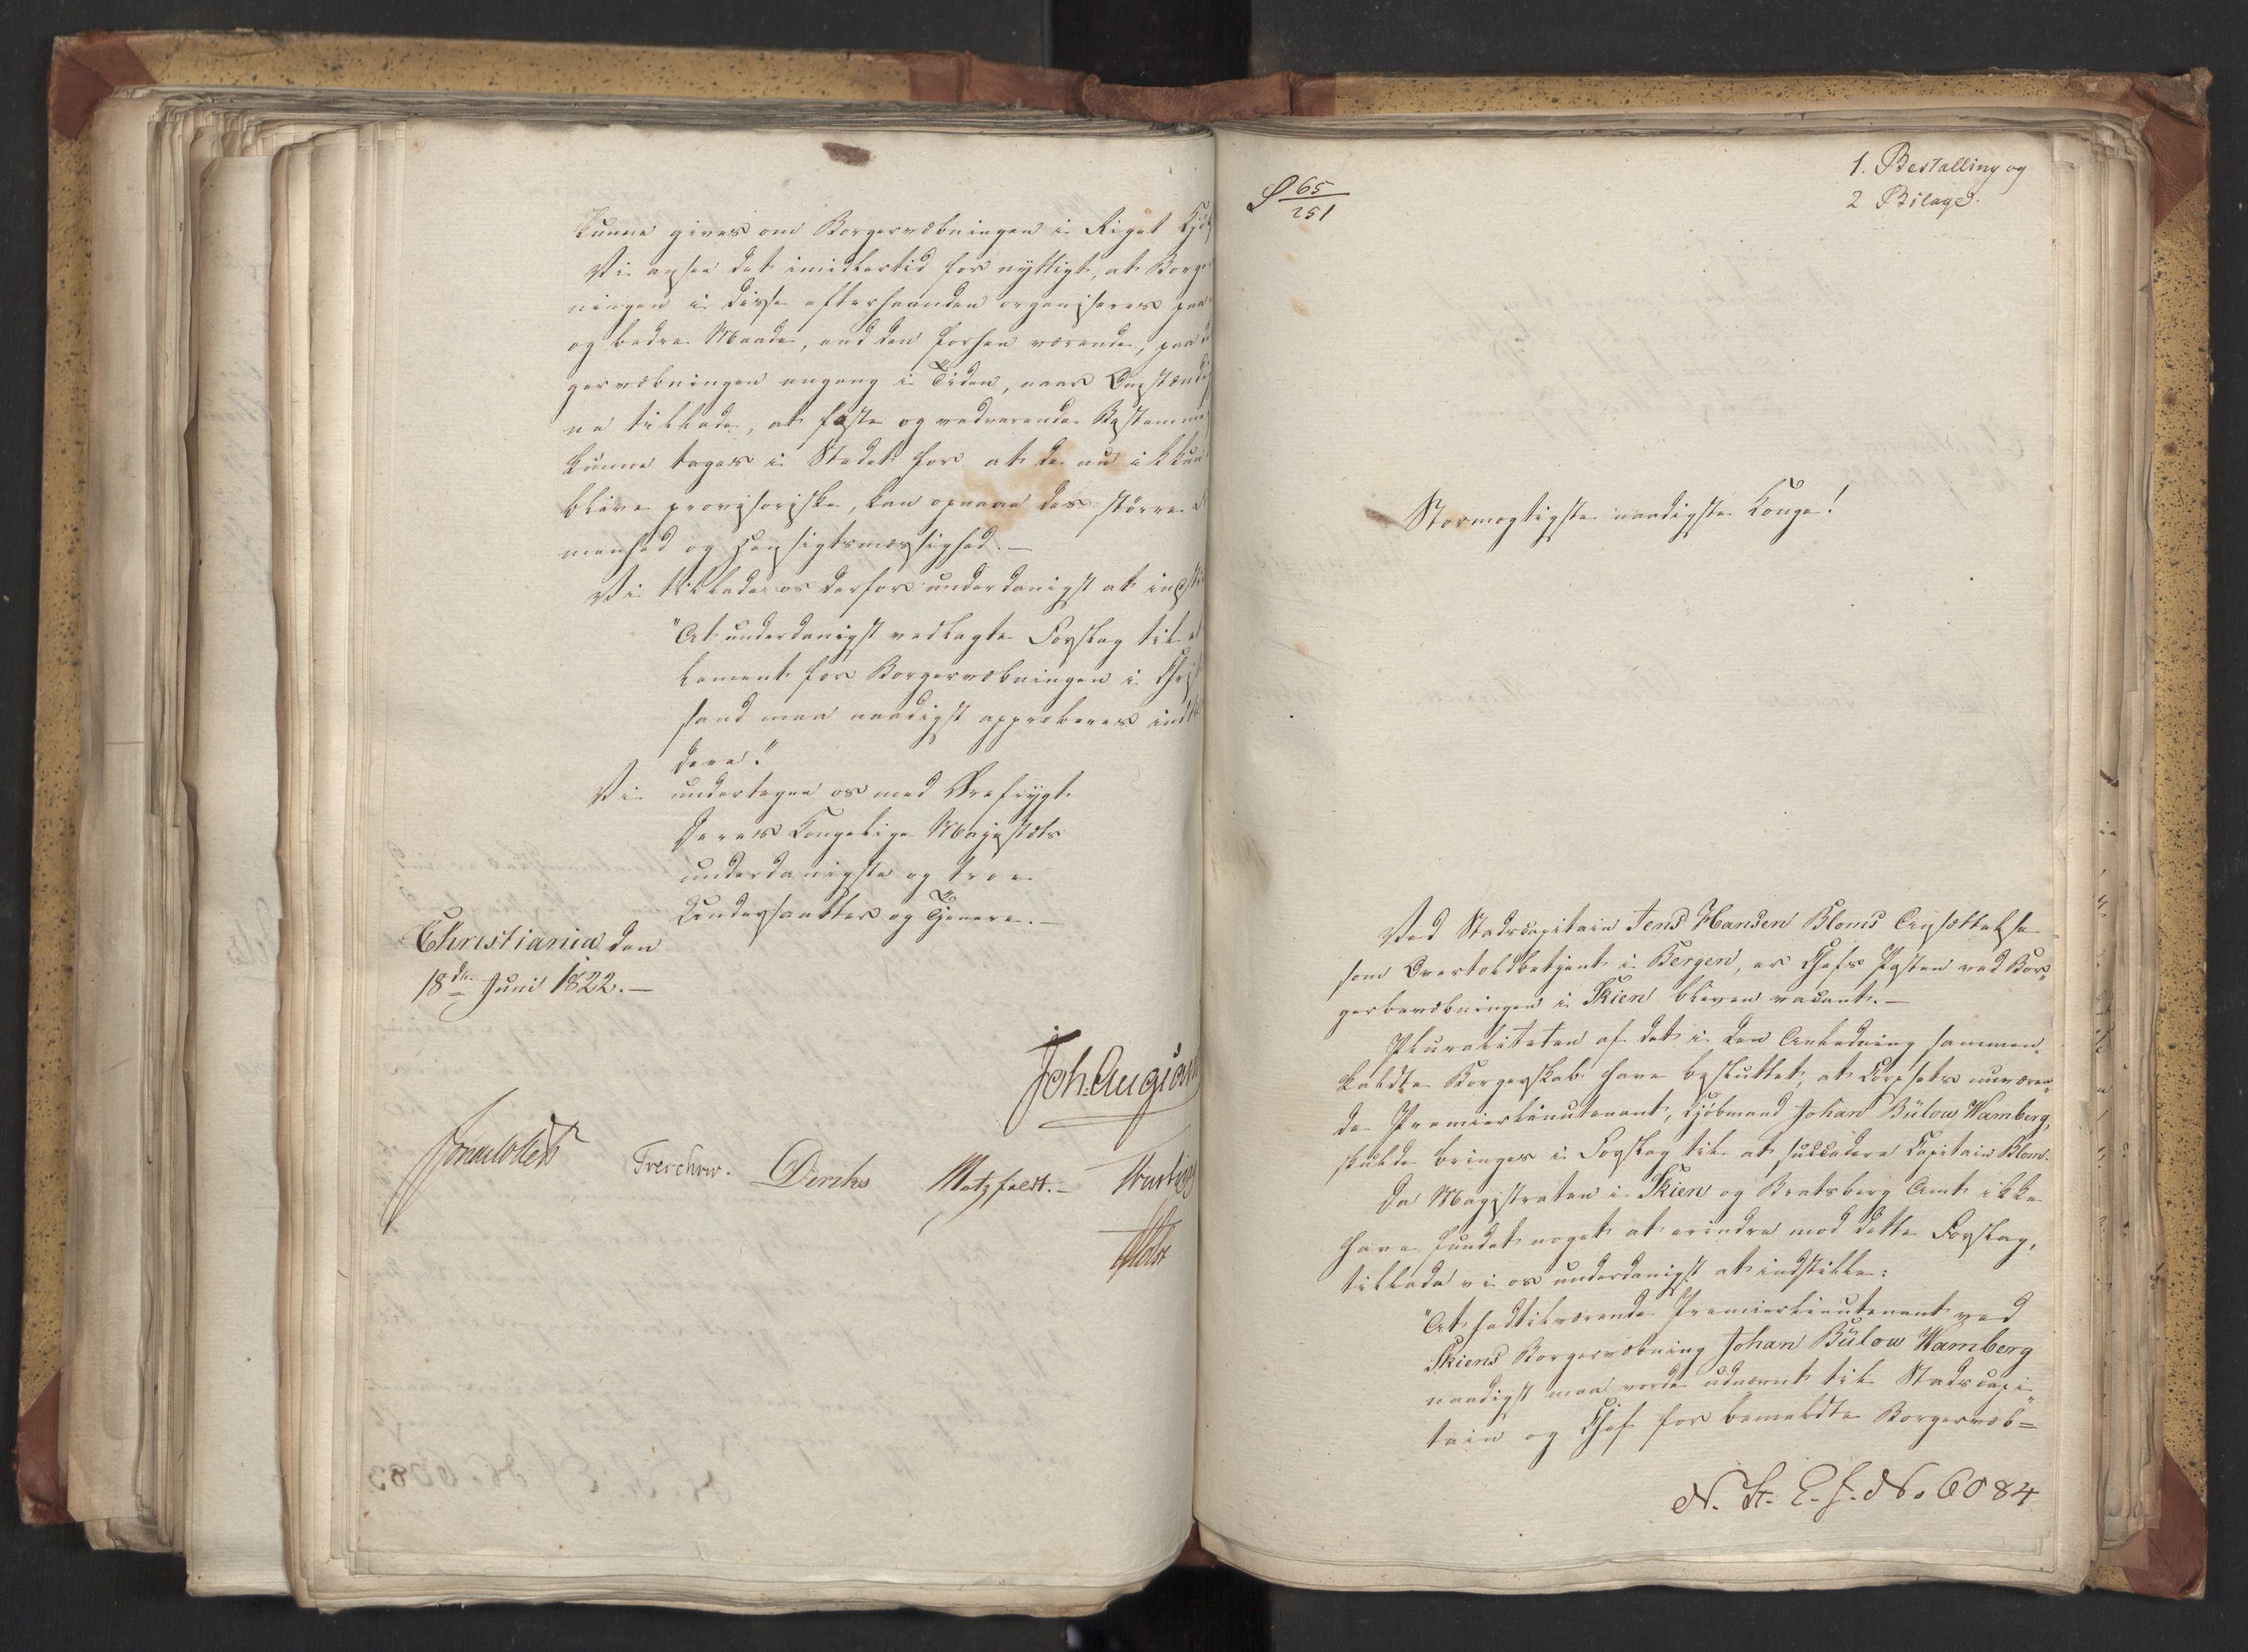 kunne gives om Borgervæbningen i Riget
Vi ansee det imidlertid for nyttigt, at
ningen i disse efterhaanden organiseres paa
og bedre Maade, end den forhen værende, paa
gervæbningen engang i Tiden, naar
ne tillade, at faste og vedvarende
kunne tages i Stedet for at de nu ikkun
blive provisoriske, kan opnaae des større
menhed og Hensigtsmæssighed.—
Vi tillade os derfor underdanigst at
"At underdanigst vedlagte Forslag til
lement for Borgervæbningen i
sand maa naadigst approberes
dere."
Vi undertegne os med Ærefrygt
Deres Kongelige Majestæts
underdanigste og troe
Undersaatter og Tjenere.—
Christiania den
18de Juni 1822.—
Joh. Aug
Sommerfeldt Treschow. Diriks Motzfeldt.—
Holst
65
251
1. Bestalling og
2 Bilage.
Stormægtigste naadigste Konge!
Ved Stadscapitain Jens Hansen Bloms Ansættelse
som Overtoldbetjent i Bergen, er Chefs Posten ved Bor„
gerbevæbningen i Skien bleven vacant.—
Pluraliteten af det i den Anledning sammen„
kaldte Borgerskab have besluttet, at Corpsets nuværen„
de Premierlieutenant, Kjøbmand Johan Bülow Wamberg,
skulde bringes i Forslag til at succedere Capitain Blom.
Da Magistraten i Skien og Bratsberg Amt ikke
have fundet noget at erindre mod dette Forslag,
tillade vi os underdanigst at indstille:
"At hidtilværende Premierlieutenant ved
Skiens Borgervæbning Johan Bülow Wamberg
naadigst maa vorde udnævnt til Stadscapi„
tain og Chef for bemeldte Borgervæb=
N. St. E. f. No. 6084